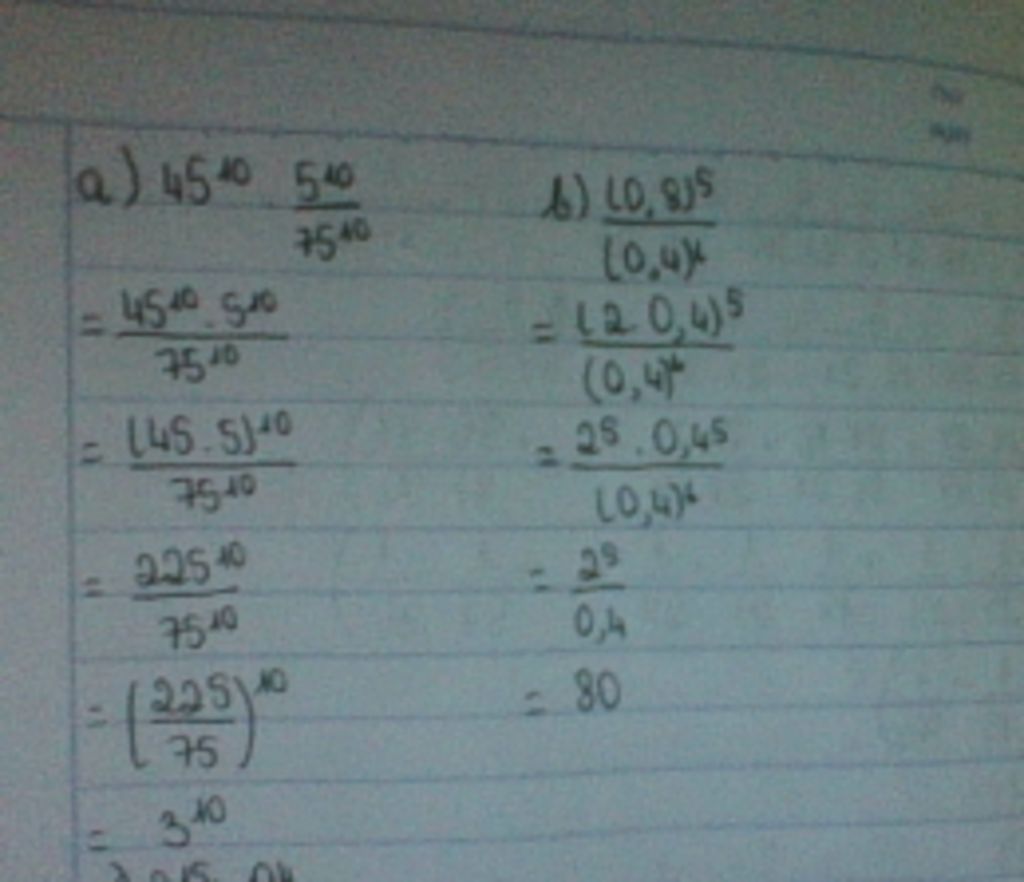 a) 45¹⁰ 5¹⁰/75¹⁰
= 45¹⁰ . 5¹⁰/75¹⁰
= (45 . 5)¹⁰/75¹⁰
= 225¹⁰/75¹⁰
= (225/75)¹⁰
= 3¹⁰
b) (0,8)⁵/(0,4)⁶
= (2 0,4)⁵/(0,4)⁶
= 2⁵ . 0,4⁵/(0,4)⁶
= 2⁵/0,4
= 80